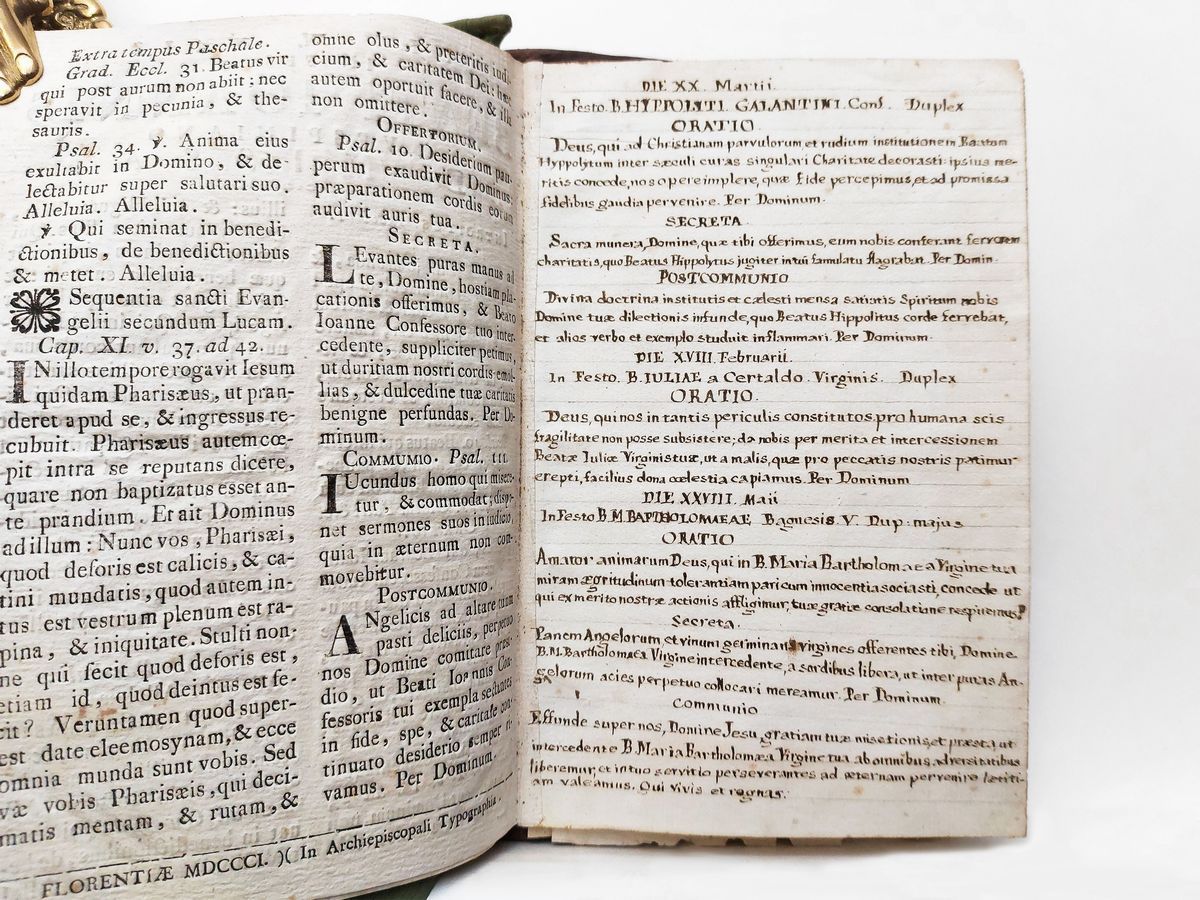 Extra tempus Paschale.
Grad. Eccl. 31. Beatus vir
qui post aurum non abiit: nec
speravit in pecunia, & the-
sauris.
Psal. 34. ℣. Anima eius
exultabit in Domino, & de-
lectabitur super salutari suo.
Alleluia. Alleluia.
℣. Qui seminat in benedi-
ctionibus, de benedictionibus
& metet. Alleluia.
Sequentia sancti Evan-
gelii secundum Lucam.
Cap. XI. v. 37. ad 42.
IN illo tempore rogavit Iesum
quidam Pharisæus, ut pran-
deret apud se, & ingressus re-
cubuit. Pharisæus autem cœ-
pit intra se reputans dicere,
quare non baptizatus esset an-
te prandium. Et ait Dominus
ad illum: Nunc vos, Pharisæi,
quod deforis est calicis, & ca-
tini mundatis, quod autem in-
tus est vestrum plenum est ra-
pina, & iniquitate. Stulti non-
ne qui fecit quod deforis est,
etiam id, quod deintus est fe-
cit? Veruntamen quod super-
est date eleemosynam, & ecce
omnia munda sunt vobis. Sed
væ vobis Pharisæis, qui deci-
matis mentam, & rutam, &
omne olus, & preteritis iudi-
cium, & caritatem Dei: hæc
autem oportuit facere, & illa
non omittere.
OFFERTORIUM.
Psal. 10. Desiderium pau-
perum exaudivit Dominus;
præparationem cordis eorum
audivit auris tua.
SECRETA.
LEvantes puras manus ad
te, Domine, hostiam pla-
cationis offerimus, & Beato
Ioanne Confessore tuo inter-
cedente, suppliciter petimus,
ut duritiam nostri cordis emol-
lias, & dulcedine tuæ caritatis
benigne perfundas. Per Do-
minum.
COMMUNIO. Psal. 111.
IUcundus homo qui misere-
tur, & commodat; dispo-
net sermones suos in iudicio,
quia in æternum non com-
movebitur.
POSTCOMMUNIO.
ANgelicis ad altare tuum
pasti deliciis, perpetuo
nos Domine comitare præsi-
dio, ut Beati Ioannis Con-
fessoris tui exempla sectantes
in fide, spe, & caritate con-
tinuato desiderio semper
vamus. Per Dominum.
FLORENTIÆ MDCCCI. )( In Archiepiscopali Typographia.
DIE XX. Martii
In Festo. B. HYPPOLITI. GALANTINI. Conf. Duplex
ORATIO.
Deus, qui ad Christianam parvulorum et rudium institutionem Beatum
Hyppolytum inter sæculi curas singulari Charitate decorasti: ipsius me-
ritis concede, nos opere implere, quæ fide percepimus, et ad promissa
fidelibus gaudia pervenire. Per Dominum.
SECRETA.
Sacra munera, Domine, quæ tibi offerimus, eum nobis conferant fervorem
charitatis, quo Beatus Hippolytus jugiter in tui famulatu flagrabat. Per Domin.
POSTCOMMUNIO
Divina doctrina institutis et cælesti mensa satiatis Spiritum nobis
Domine tuæ dilectionis infunde, quo Beatus Hippolitus corde ferrebat,
et alios verbo et exemplo studuit inflammari. Per Dominum.
DIE XVIII. Februarii.
In Festo. B. IULIAE a Certaldo. Virginis. Duplex
ORATIO.
Deus, qui nos in tantis periculis constitutos, pro humana scis
fragilitate non posse subsistere; da nobis per merita et intercessionem
Beatæ Iuliæ Virginis tuæ, ut a malis, quæ pro peccatis nostris patimur
erepti, facilius dona cœlestia capiamus. Per Dominum
DIE XXVIII. Maii
In Festo B. M. BARTHOLOMAEAE Bagnesis. V. Dup: majus
ORATIO
Amator animarum Deus, qui in B. Maria Bartholomaea Virgine tua
miram ægritudinum tolerantiam pari cum innocentia sociasti, concede ut
qui ex merito nostræ actionis affligimur, tuæ gratiæ consolatione respiremus. P
Secreta.
Panem Angelorum, et vinum germinans virgines offerentes tibi, Domine.
B. M. Bartholomæa Virgine intercedente, a sordibus libera, ut inter puras An-
gelorum acies perpetuo collocari mereamur. Per Dominum.
Communio
Effunde super nos, Domine Jesu, gratiam tuæ misetionis, et præsta ut
intercedente B. Maria Bartholomæa Virgine tua ab omnibus adversitatibus
liberemur, et in tuo servitio perseverantes ad æternam pervenire lætiti-
am valeamus. Qui vivis et regnas.